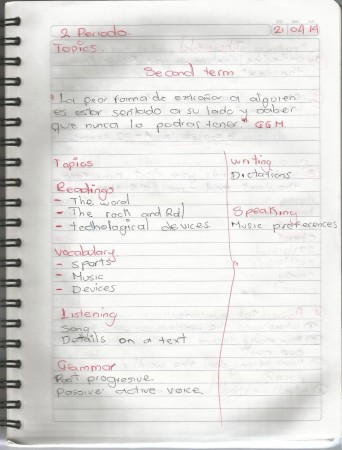 2 Periodo.
21 04 14
Topics.
Second term
"La peor forma de extrañar a alguien
es estar sentado a su lado y saber
que nunca lo podras tener." GGM.
Topics
Readings
- The word
- The rock and Rol
- techological devices
Vocabulary
- Sports
- Music
- Devices
Listening
Song
Details on a text
Grammar
Past progresive
Passive active voice
Writing
Dictations
Speaking
Music preferences